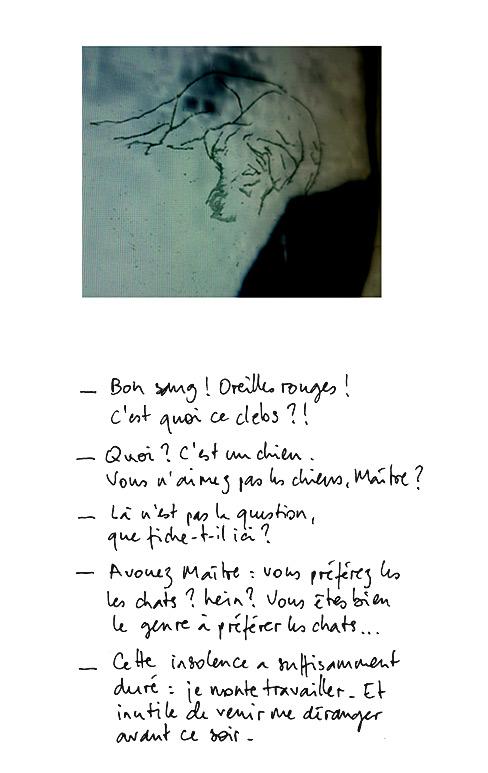 — Bon sang ! Oreilles rouges !
C'est quoi ce clebs ?!
— Quoi ? C'est un chien.
Vous n'aimez pas les chiens, Maître ?
— Là n'est pas la question,
que fiche-t-il ici ?
— Avouez Maître : vous préférez les
les chats ? hein ? Vous êtes bien
le genre à préférer les chats...
— Cette insolence a suffisamment
duré : je monte travailler. Et
inutile de venir me déranger
avant ce soir.